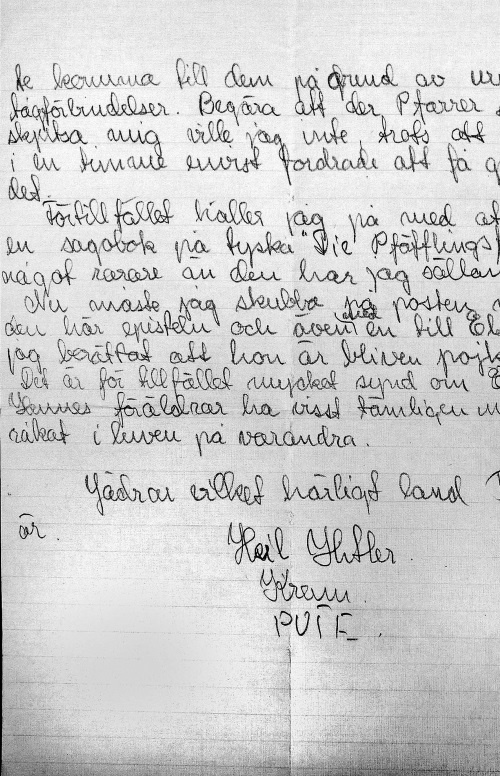 te komma till dem på grund av
tågförbindelser. Begära att der Pfarrer
skjutsa mig ville jag inte, trots att
i en timme envist fordrade att få
det.
Förtillfället håller jag på med
en sagobok på tyska "Die Pfäfflings
något rarare än den har jag sällan
Nu måste jag skubba på posten
den här episteln och även med en till
jag berättat att hon är bliven
Det är för tillfället mycket synd om
föräldrar ha visst tämligen
råkat i luven på varandra.
Jädrar vilket härligt land
är.
Heil Hitler.
Kram
PUTE.